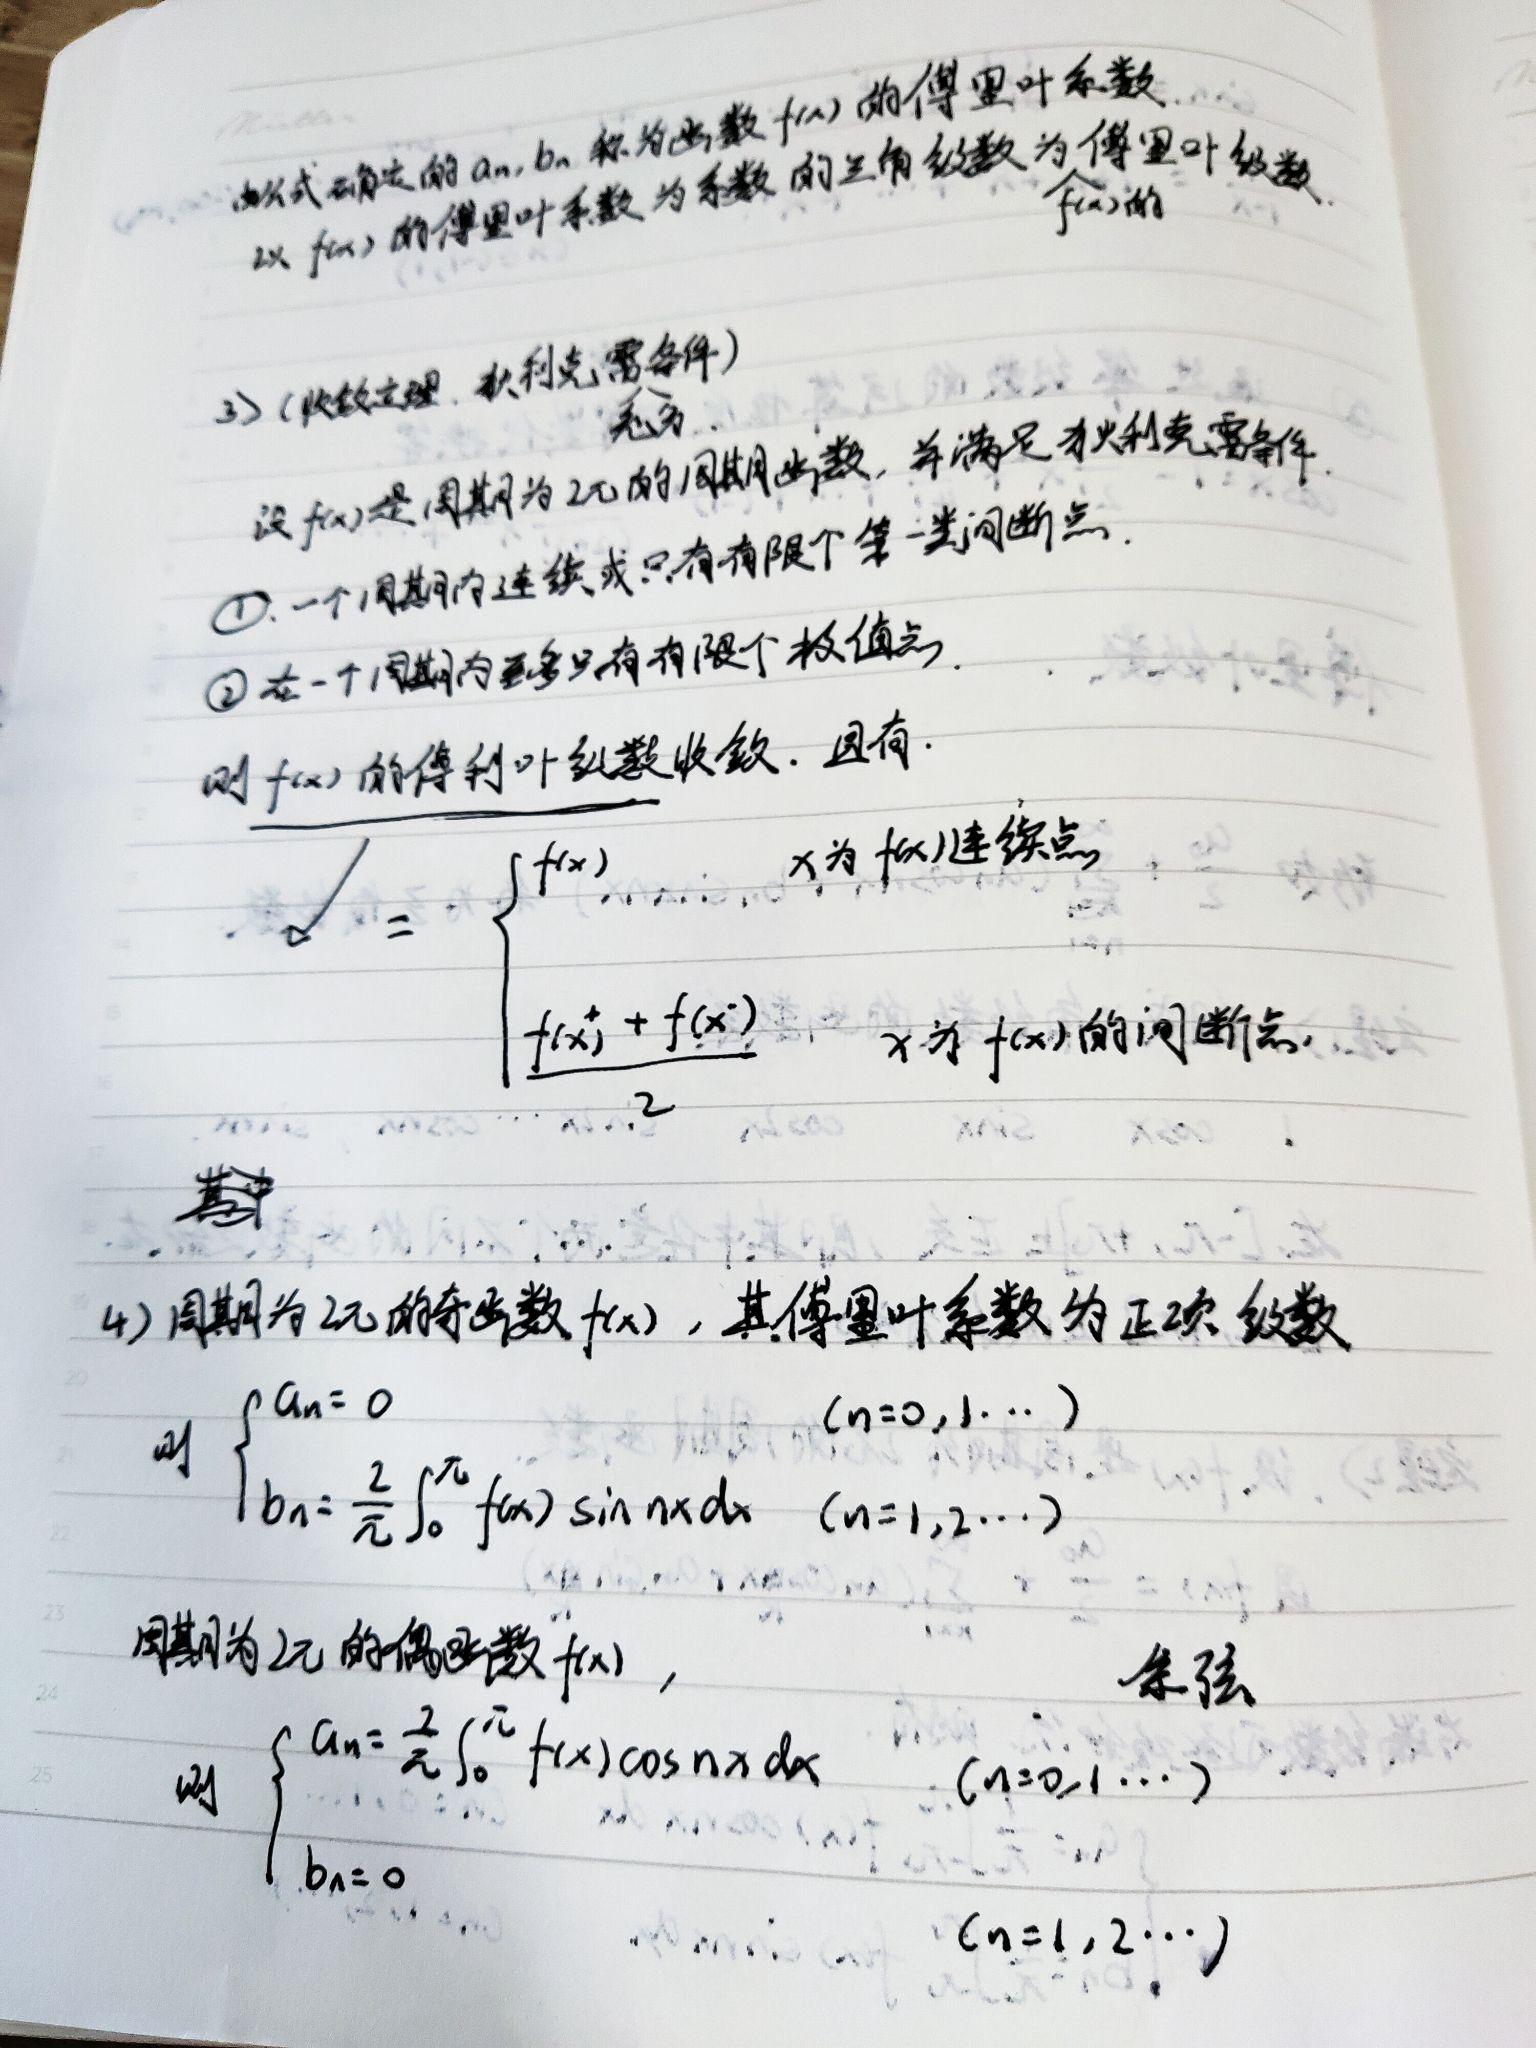 由公式确定的 an, bn 称为函数 f(x) 的傅里叶系数.
以 f(x) 的傅里叶系数为系数的三角级数为傅里叶级数.
f(x)的
3) (收敛定理. 狄利克雷条件)
充分.
设 f(x) 是周期为2π的周期函数, 并满足狄利克雷条件.
①. 一个周期内连续或只有有限个第一类间断点.
② 在一个周期内至多只有有限个极值点.
则 f(x) 的傅利叶级数收敛. 且有.
= { f(x) x为 f(x) 连续点
f(x⁺) + f(x⁻) / 2 x为 f(x) 的间断点.
其中
4) 周期为2π的奇函数 f(x), 其傅里叶系数为正项级数
则 { an = 0 (n=0,1···)
bn = 2/π ∫₀^π f(x) sin nx dx (n=1,2···)
周期为2π的偶函数 f(x), 余弦
则 { an = 2/π ∫₀^π f(x) cos nx dx (n=0,1···)
bn = 0 (n=1,2···)